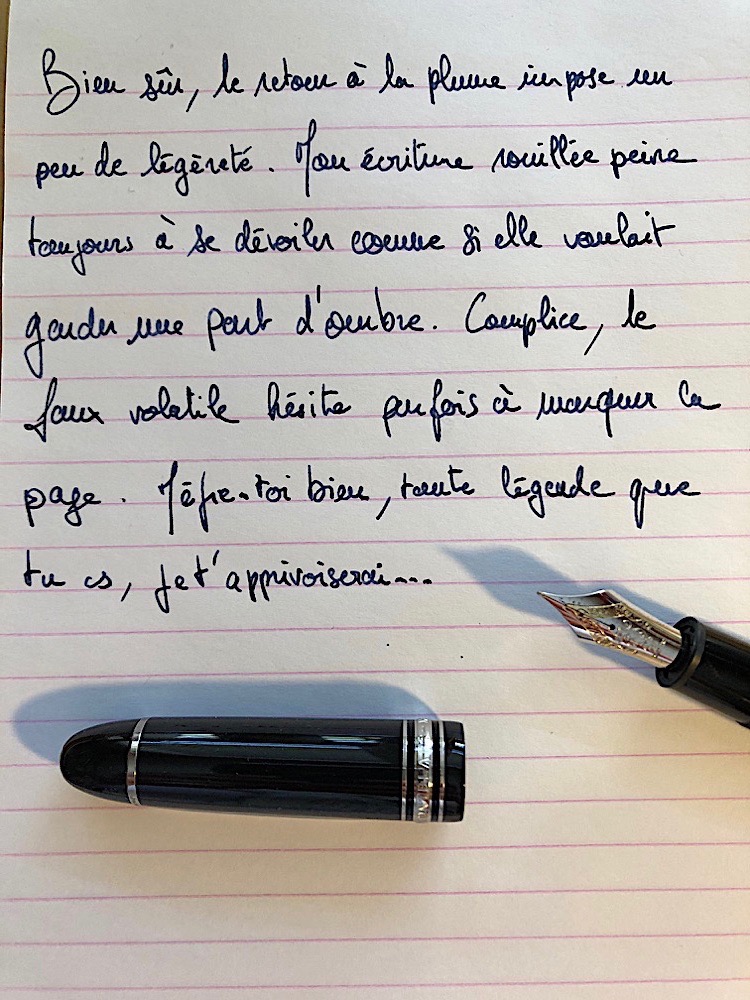 Bien sûr, le retour à la plume impose un
peu de légèreté. Mon écriture rouillée peine
toujours à se dévoiler comme si elle voulait
garder une part d'ombre. Complice, le
faux volatile hésite parfois à marquer la
page. Méfie-toi bien, toute légende que
tu es, je t'apprivoiserai...